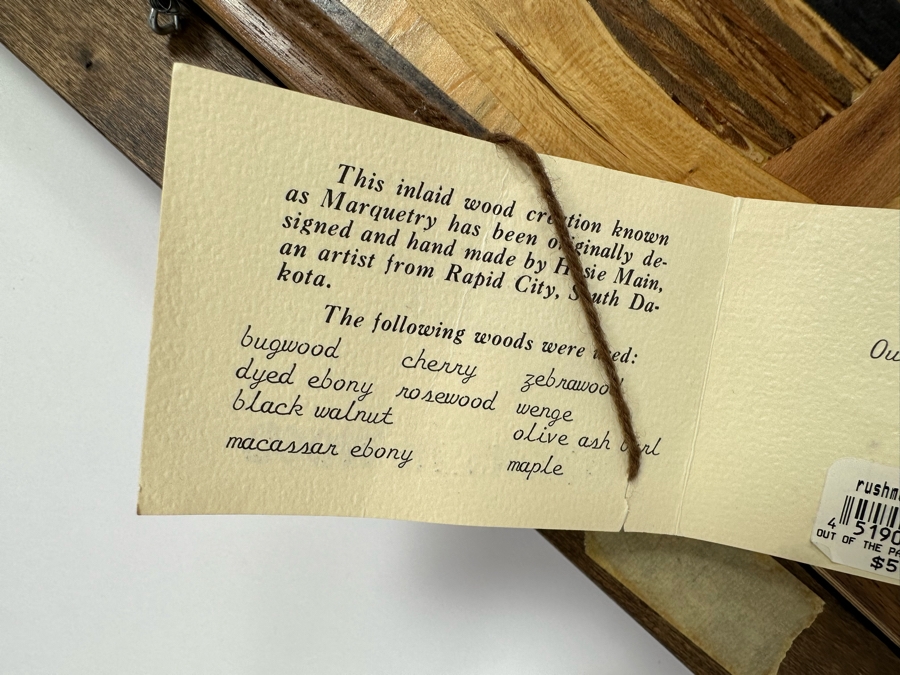 This inlaid wood creation known
as Marquetry has been originally de-
signed and hand made by Main,
an artist from Rapid City, South Da-
kota.
The following woods were used:
bugwood cherry zebrawood
dyed ebony rosewood wenge
black walnut olive ash burl
macassar ebony maple
Ou
rushm
4 5190
OUT OF THE PA
$5